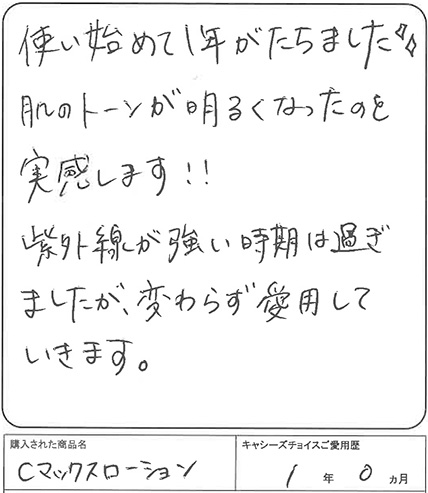 使い始めて1年がたちました✧✧
肌のトーンが明るくなったのを
実感します!!
紫外線が強い時期は過ぎ
ましたが、変わらず愛用して
いきます。
購入された商品名
Cマックスローション
キャシーズチョイスご愛用歴
1年0ヵ月